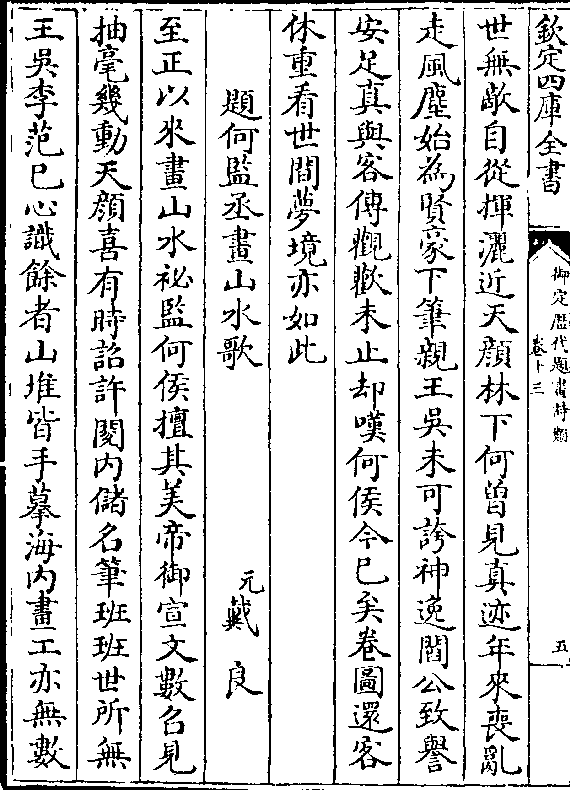 欽定四庫全書
御定歴代題畫詩類
卷十三
五
世無敵自從揮灑近天顔林下何曾見真迹年來喪亂
走風塵始為賢豪下筆親王吳未可誇神逸閻公致譽
安足真與客傳觀歡未止却嘆何侯今已矣卷圖還客
休重看世間夢境亦如此
題何監丞畫山水歌
元戴良
至正以來畫山水祕監何侯擅其美帝御宣文數召見
抽毫幾動天顔喜有時詔許閱內儲名筆班班世所無
王吳李范已心識餘者山堆皆手摹海内畫工亦無數